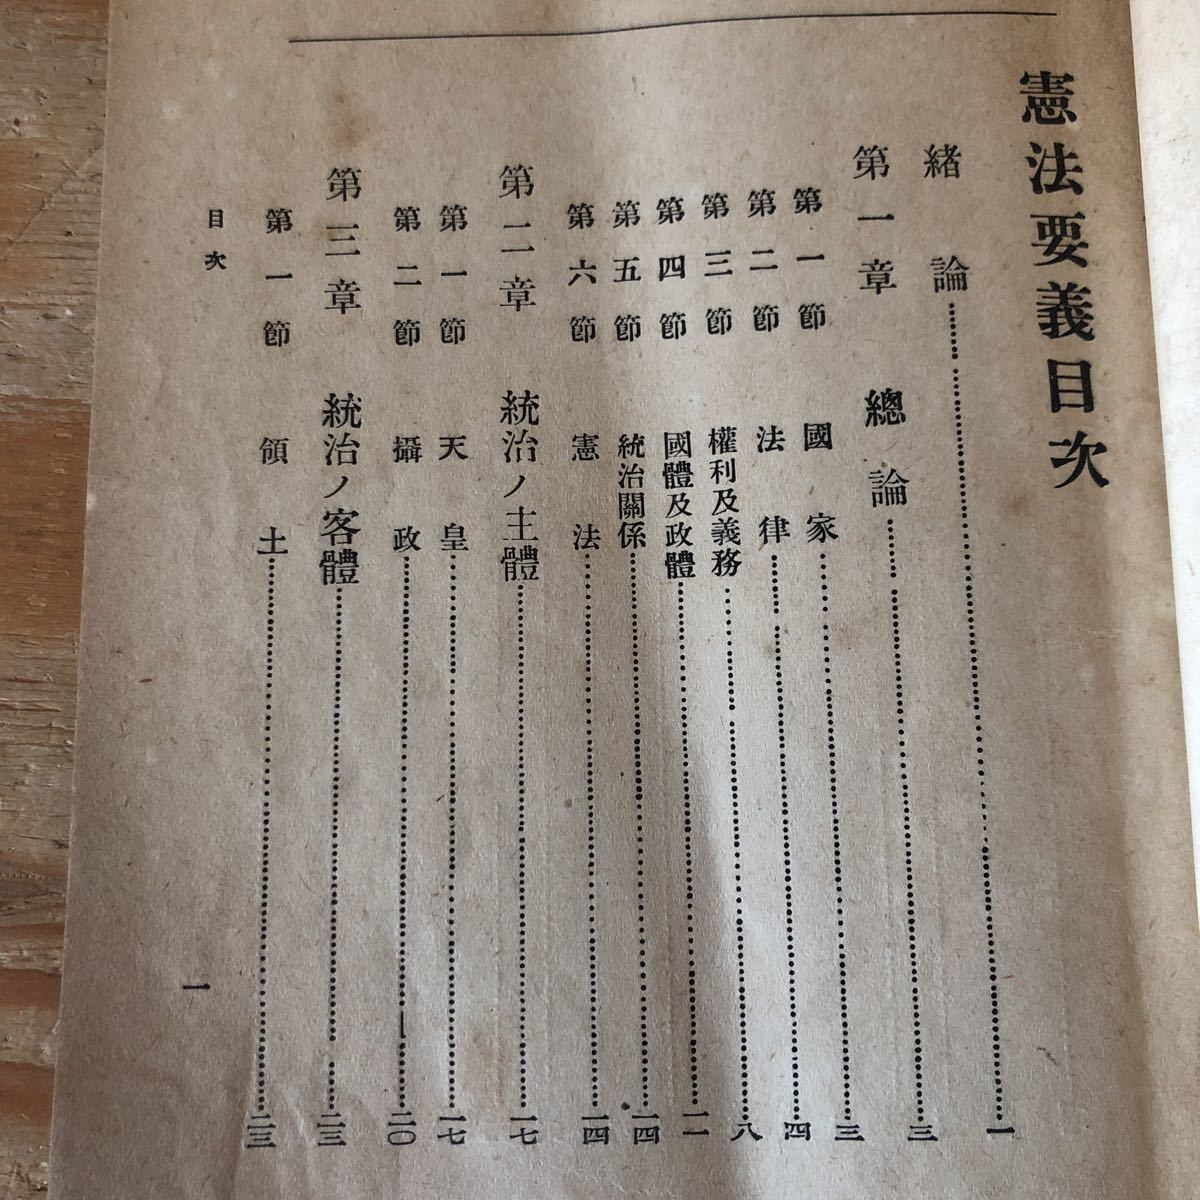 憲法要義目次
緒論……一
第一章 總論……三
第一節 國家……三
第二節 法律……四
第三節 權利及義務……八
第四節 國體及政體……一一
第五節 統治關係……一四
第六節 憲法……一四
第二章 統治ノ主體……一七
第一節 天皇……一七
第二節 攝政……二〇
第三章 統治ノ客體……二三
第一節 領土……二三
目次
一